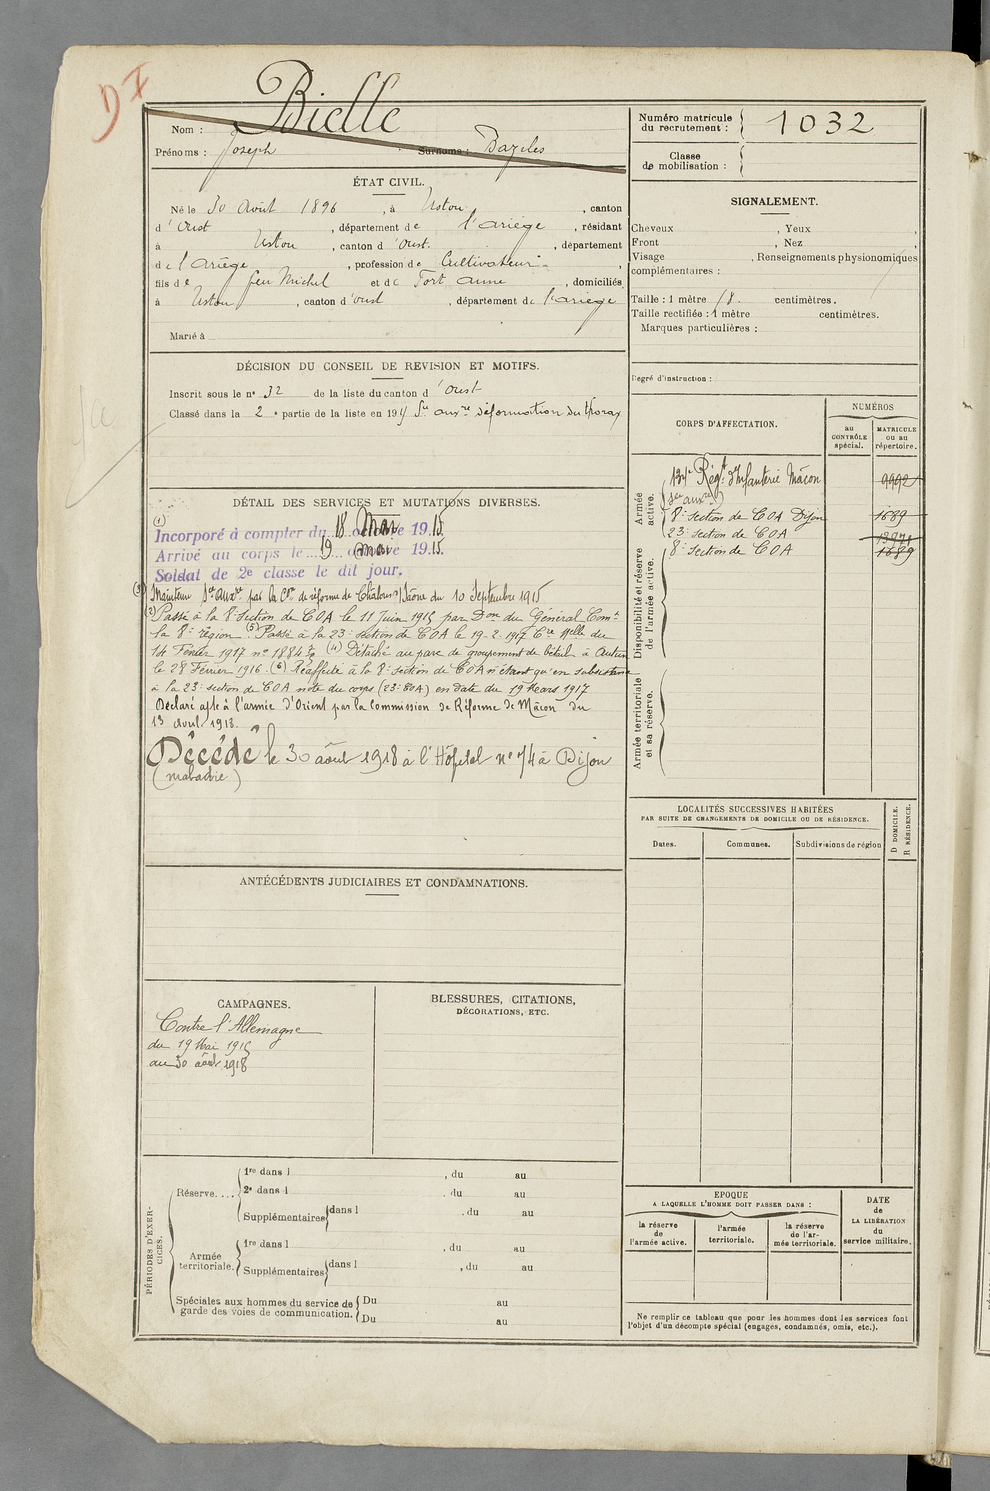 D I
Nom : Bielle
Prénoms : Joseph Surnoms : Daziles
Numéro matricule du recrutement : 1032
Classe de mobilisation :
ÉTAT CIVIL.
Né le 30 Août 1896, à Ustou, canton
d'Oust, département de l'Ariège, résidant
à Ustou, canton d'Oust, département
de l'Ariège, profession de Cultivateur
fils de feu Michel et de Fort Anne, domiciliés
à Ustou, canton d'Oust, département de l'Ariège
Marié à
SIGNALEMENT.
Cheveux , Yeux ,
Front , Nez ,
Visage , Renseignements physionomiques
complémentaires :
Taille : 1 mètre 8. centimètres.
Taille rectifiée : 1 mètre centimètres.
Marques particulières :
Degré d'instruction :
DÉCISION DU CONSEIL DE REVISION ET MOTIFS.
Inscrit sous le n° 32 de la liste du canton d'Oust
Classé dans la 2e partie de la liste en 191 Sce auxre déformation du thorax
DÉTAIL DES SERVICES ET MUTATIONS DIVERSES.
(1)
Incorporé à compter du 18 Mai 1915.
Arrivé au corps le 19 mai 1915.
Soldat de 2e classe le dit jour.
(3) Maintenu Sce auxre par la Con de réforme de Chalons s/Saône du 10 Septembre 1915
(2) Passé à la 8e Section de COA le 11 Juin 1915 par Don du Général Comt
la 8e région (5) Passé à la 23e section de COA le 19.2.1917 Cre Melle du
14 Février 1917 n° 18843/5 (4) Détaché au parc de groupement de bétail à Autun
le 28 Février 1916. (6) Réaffecté à la 8e section de COA n'étant qu'en subsistance
à la 23e section de COA note du corps (23e COA) en date du 19 Mars 1917
Déclaré apte à l'armée d'Orient par la Commission de Réforme de Mâcon du
13 Avril 1918.
Décédé le 30 août 1918 à l'Hôpital n° 74 à Dijon
(maladie)
CORPS D'AFFECTATION.
NUMÉROS
au CONTRÔLE spécial.
MATRICULE ou au répertoire.
Armée active.
134e Régt d'Infanterie Mâcon 9992
(Sce auxre)
8e section de COA Dijon 1689
23e section de COA 13971
8e section de COA 1689
Disponibilité et réserve de l'armée active.
Armée territoriale et sa réserve.
LOCALITÉS SUCCESSIVES HABITÉES
PAR SUITE DE CHANGEMENTS DE DOMICILE OU DE RÉSIDENCE.
Dates.
Communes.
Subdivisions de région
D DOMICILE.
R RÉSIDENCE.
ANTÉCÉDENTS JUDICIAIRES ET CONDAMNATIONS.
CAMPAGNES.
Contre l'Allemagne
du 19 Mai 1915
au 30 août 1918
BLESSURES, CITATIONS,
DÉCORATIONS, ETC.
PÉRIODES D'EXERCICES.
Réserve....
1re dans l , du au
2e dans l , du au
Supplémentaires dans l , du au
Armée territoriale.
1re dans l , du au
Supplémentaires dans l , du au
Spéciales aux hommes du service de garde des voies de communication.
Du au
Du au
EPOQUE
A LAQUELLE L'HOMME DOIT PASSER DANS :
la réserve de l'armée active.
l'armée territoriale.
la réserve de l'armée territoriale.
DATE de LA LIBÉRATION du service militaire.
Ne remplir ce tableau que pour les hommes dont les services font
l'objet d'un décompte spécial (engagés, condamnés, omis, etc.).